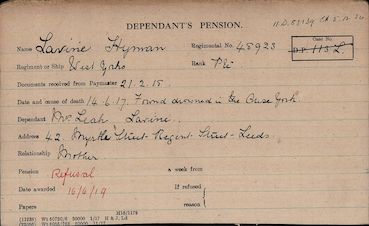 DEPENDANT'S PENSION.
Name Lavine Hyman Regimental No. 45923
Case No.
Regiment or Ship West Yorks Rank Pte
Documents received from Paymaster 21.2.18.
Date and cause of death 14.6.17. Found drowned in the Ouse York.
Dependant Mrs Leah Lavine.
Address 42. Myrtle Street Regent Street Leeds.
Relationship Mother
Pension Refusal a week from
Date awarded 16/6/19 If refused
Papers reason
H16/1178